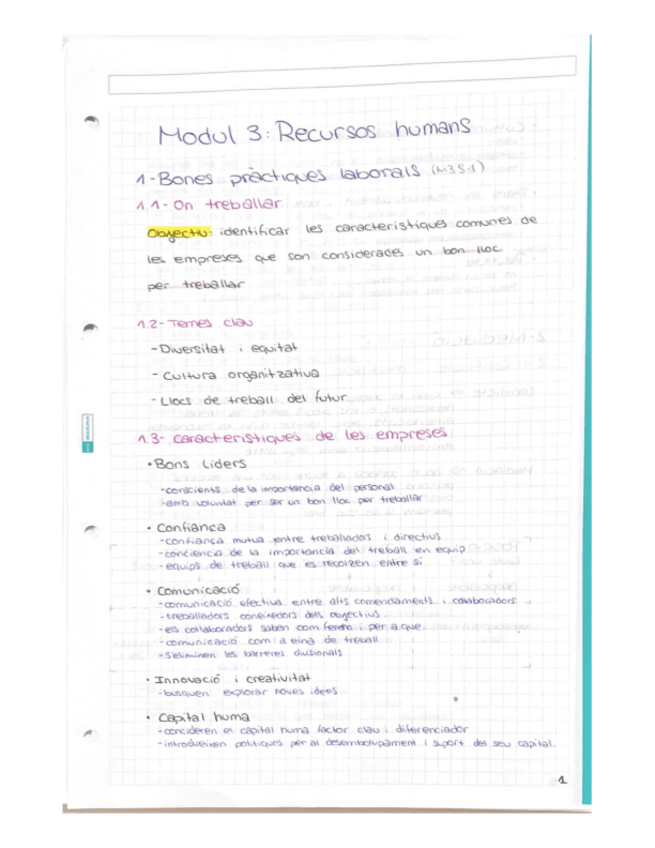 Modul 3: Recursos humans
1-Bones pràctiques laborals (M3S1)
1.1- On treballar
Objectiu: identificar les característiques comunes de
les empreses que son considerades un bon lloc
per treballar
1.2- Temes clau
-Diversitat i equitat
- Cultura organitzativa
- Llocs de treball del futur
1.3- característiques de les empreses
•Bons líders
-conscients de la importancia del personal
-amb voluntat per ser un bon lloc per treballar
• Confiança
-confiança mutua entre treballadors i directius
-conciencia de la importancia del treball en equip
-equips de treball que es recolzen entre si
• Comunicació
-comunicació efectiva entre alts comendaments i colaboradors
-treballadors coneixedors dels objectius
-els col·laboradors saben com fer-ho i per a que.
-comunicació com a eina de treball
-s'eliminen les barreres divisionals
• Innovació i creativitat
-busquen explorar noves idees
• Capital humà
-concideren el capital humà factor clau i diferenciador
-introdueixen politiques per al desembolupament i suport del seu capital.
1